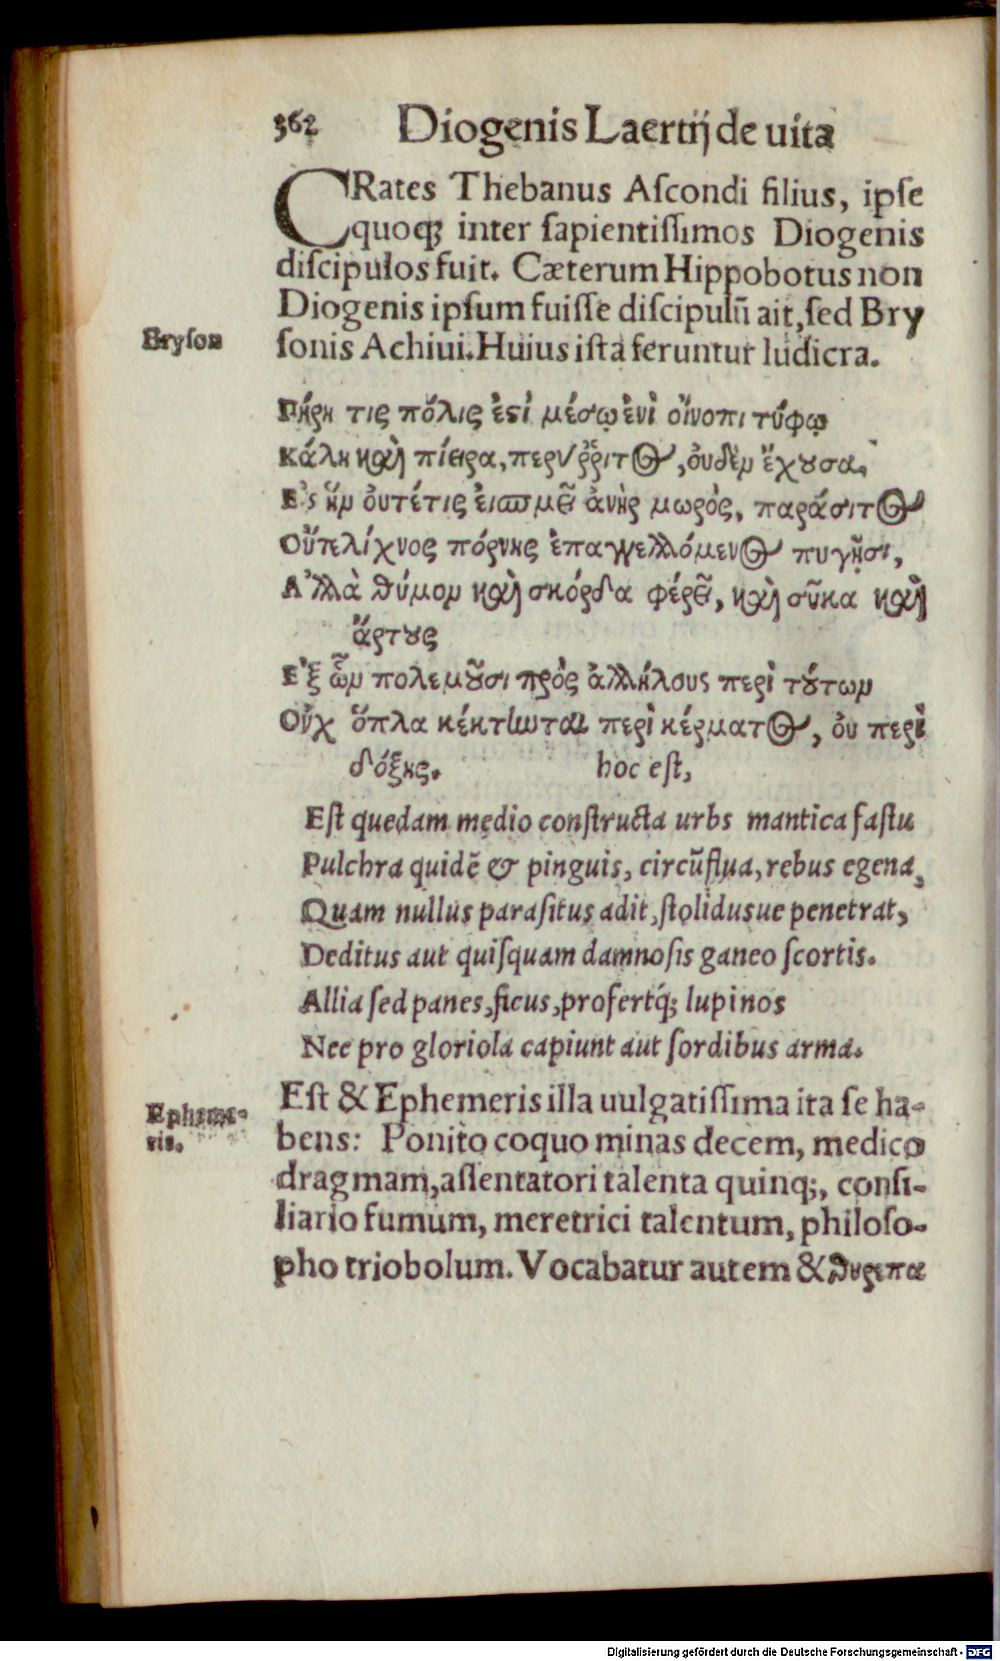 362 Diogenis Laertij de uita
CRates Thebanus Aſcondi filius, ipſe
quoq; inter ſapientiſſimos Diogenis
diſcipulos fuit. Cæterum Hippobotus non
Diogenis ipſum fuiſſe diſcipulū ait, ſed Bry
Bryſon
ſonis Achiui. Huius iſta feruntur ludicra.
Πήρη τις πόλις ἐςὶ μέσῳ ἐνὶ οἴνοπι τύφῳ
Κάλη καὶ πίειρα, περύῤῥιτος, ὀυδὲν ἔχουσα,
Εἰς ἣν ὀυτέτις ἐισπλεῖ ἀνὴρ μωρὸς, παράσιτος
Οὔτελίχνος πόρνης ἐπαγγελλόμενος πυγῆσι,
Αλλὰ θύμον καὶ σκόρδα φέρει, καὶ σῦκα καὶ
ἄρτους
Εξ ὧν πολεμοῦσι πρὸς ἀλλήλους περὶ τούτων
Οὐχ ὅπλα κέκτηνται περὶ κέρματος, ὀυ περὶ
δόξης. hoc eſt,
Eſt quedam medio conſtructa urbs mantica faſtu
Pulchra quidē & pinguis, circūflua, rebus egena,
Quam nullus paraſitus adit, ſtolidusue penetrat,
Deditus aut quiſquam damnoſis ganeo ſcortis.
Allia ſed panes, ficus, profertq́; lupinos
Nec pro gloriola capiunt aut ſordibus arma.
Eſt & Ephemeris illa uulgatiſſima ita ſe ha-
Epheme-
ris.
bens: Ponito coquo minas decem, medico
dragmam, aſſentatori talenta quinq;, conſi-
liario fumum, meretrici talentum, philoſo-
pho triobolum. Vocabatur autem & θυρεπα
Digitalisierung gefördert durch die Deutsche Forschungsgemeinschaft - DFG